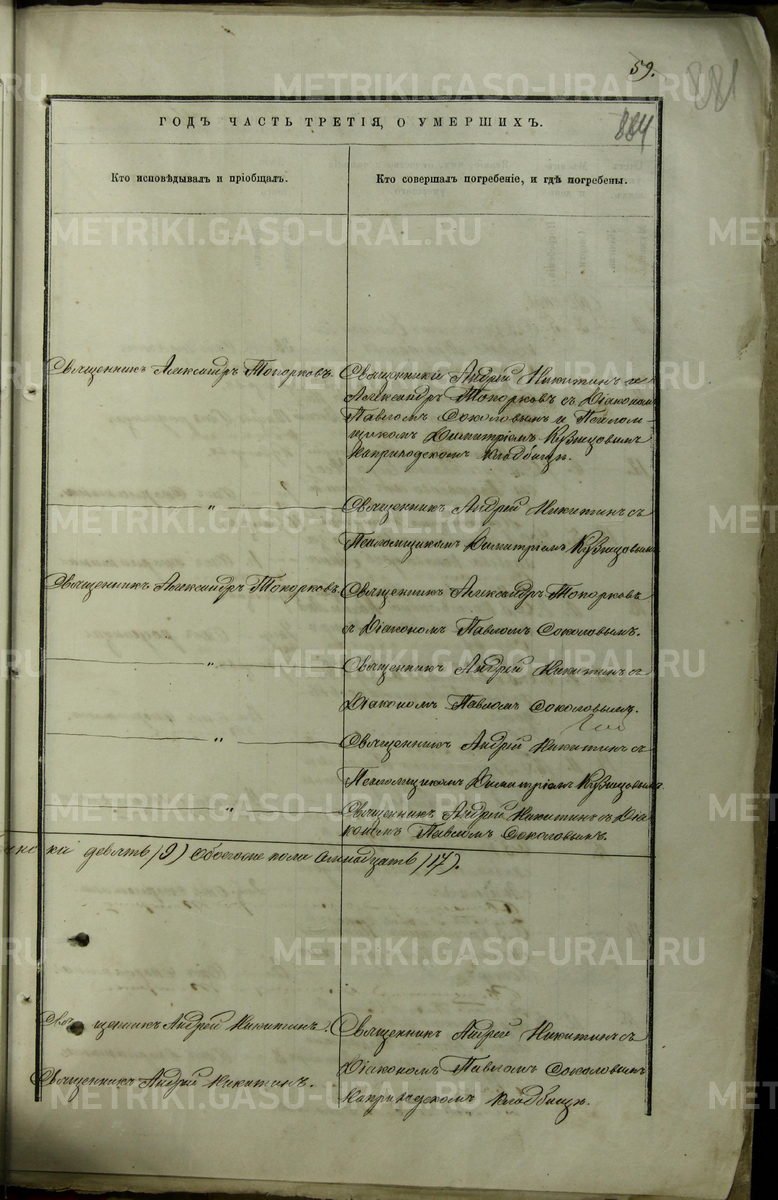 59.
881
884
ГОДЪ ЧАСТЬ ТРЕТІЯ, О УМЕРШИХЪ.
Кто исповѣдывалъ и пріобщалъ.
Кто совершалъ погребеніе, и гдѣ погребены.
Священникъ Александръ Топорковъ.
Священники Андрей Никитинъ и
Александръ Топорковъ съ Діакономъ
Павломъ Соколовымъ и Псалом-
щикомъ Димитріемъ Кузнцовымъ
на приходскомъ кладбищѣ.
"
Священникъ Андрей Никитинъ съ
Псаломщикомъ Димитріемъ Кузнцовымъ
Священникъ Александръ Топорковъ.
Священникъ Александръ Топорковъ
съ Діакономъ Павломъ Соколовымъ.
"
Священникъ Андрей Никитинъ съ
Діакономъ Павломъ Соколовымъ.
"
Священникъ Андрей Никитинъ съ
Псаломщикомъ Димитріемъ Кузнцовымъ
"
Священникъ Андрей Никитинъ съ Діа
кономъ Павломъ Соколовымъ.
девять (9) обоего пола (17).
Священникъ Андрей Никитинъ.
Священникъ Андрей Никитинъ.
Священникъ Андрей Никитинъ съ
Діакономъ Павломъ Соколовымъ
на приходскомъ кладбищѣ.
METRIKI.GASO-URAL.RU